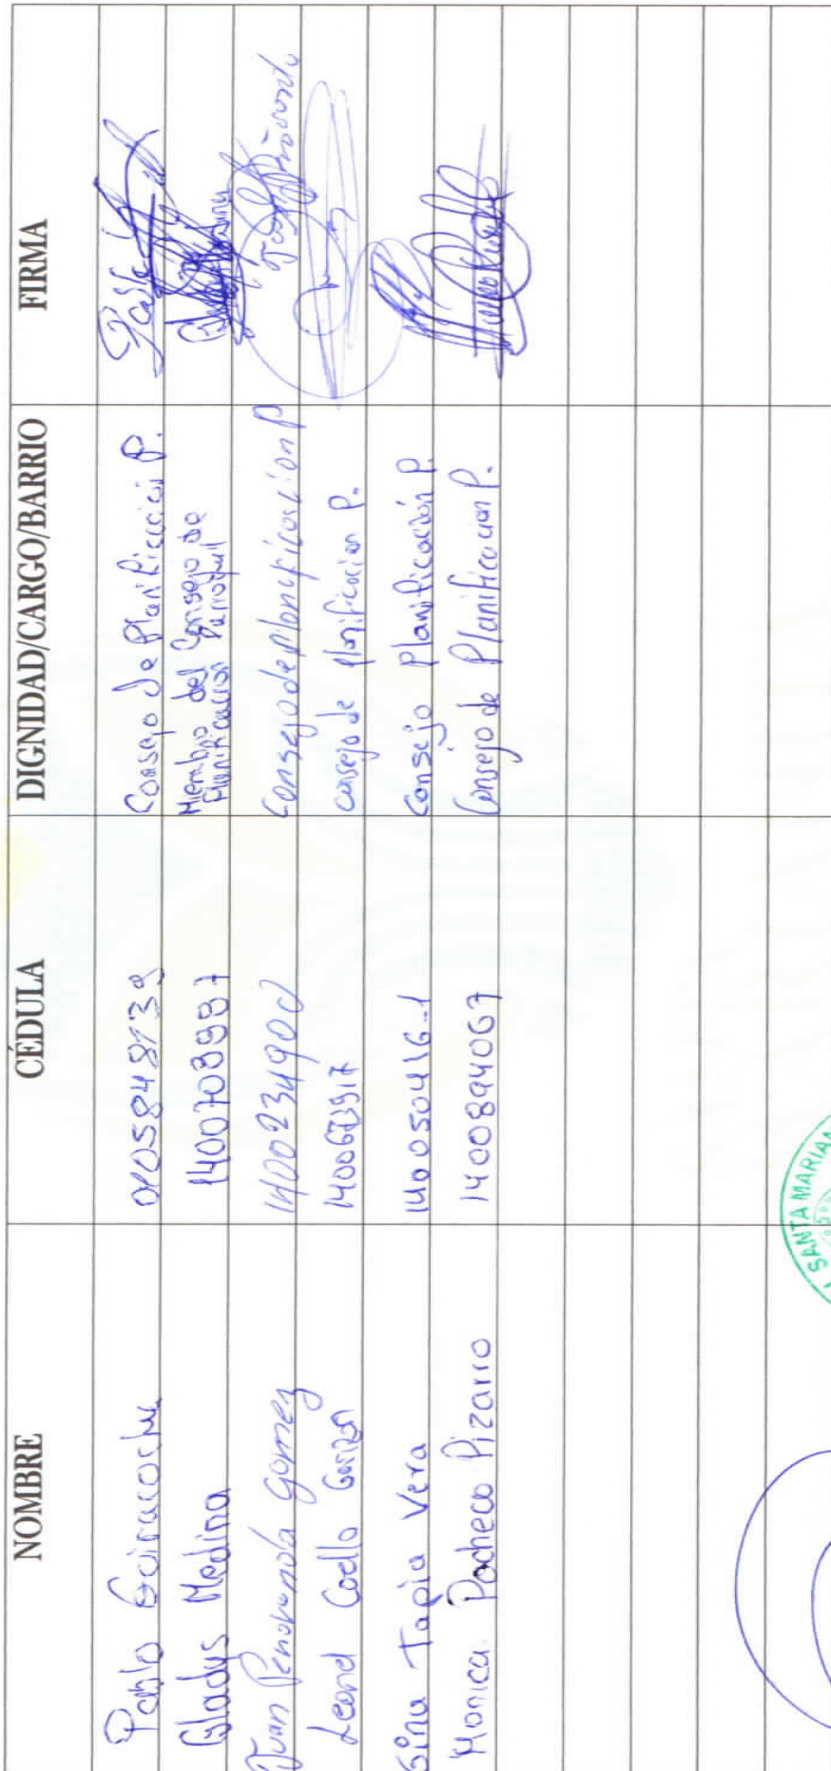 NOMBRE CÉDULA DIGNIDAD/CARGO/BARRIO FIRMA
Pablo Consejo de Planificación P.
Gladys Medina 1400708987 Miembro del Consejo de
Planificación Parroquial
Juan Penaranda Gomez 1400234900 Consejo de planificacion P
Leonel Coello Garzon 1400673917 consejo de planificacion P.
Gina Tapia Vera 140050416-1 Consejo Planificación P.
Monica Pacheco Pizarro 1400894067 Consejo de Planificacion P.
SANTA MARIAN